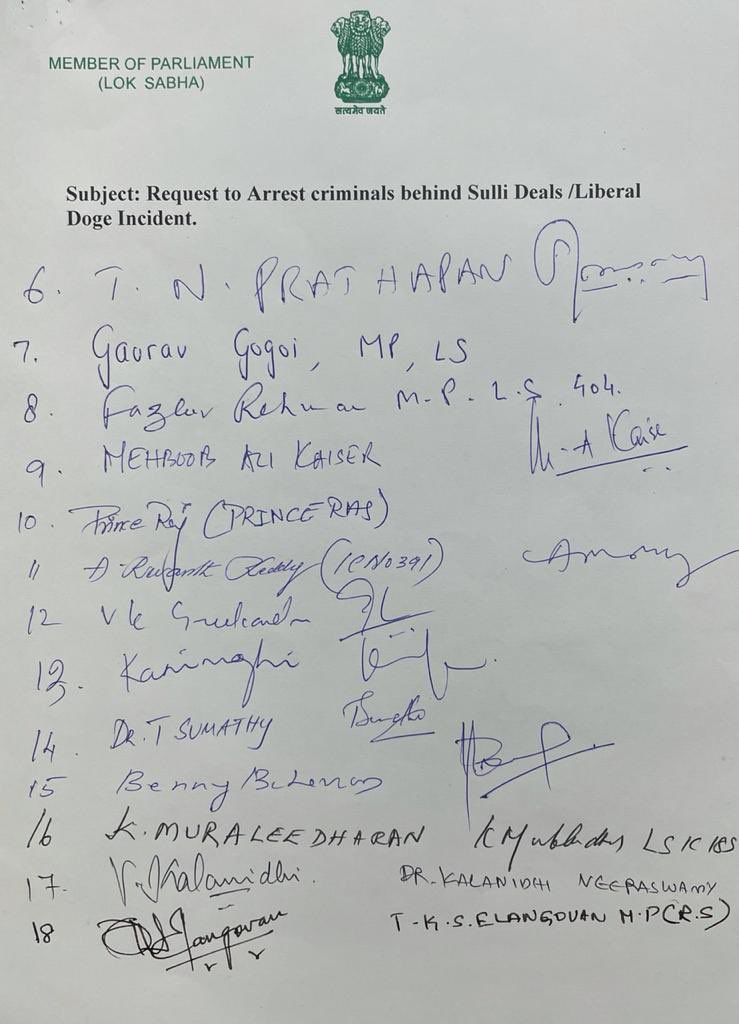 MEMBER OF PARLIAMENT
(LOK SABHA)
सत्यमेव जयते
Subject: Request to Arrest criminals behind Sulli Deals /Liberal
Doge Incident.
6. T. N. PRATHAPAN
7. Gaurav Gogoi, MP, LS
8. Fazlur Rehman M.P. L.S 404.
9. MEHBOOB ALI KAISER M.A Kaise
10. Prince Raj (PRINCE RAJ)
11 A. Revanth Reddy (IC NO 391)
12 V k Sreekandan
13. Kanimozhi
14. Dr. T SUMATHY
15 Benny Behanan
16 K. MURALEEDHARAN LS IC 185
17. V. Kalanidhi. DR. KALANIDHI VEERASWAMY
18 T.K.S. ELANGOVAN M.P (R.S)